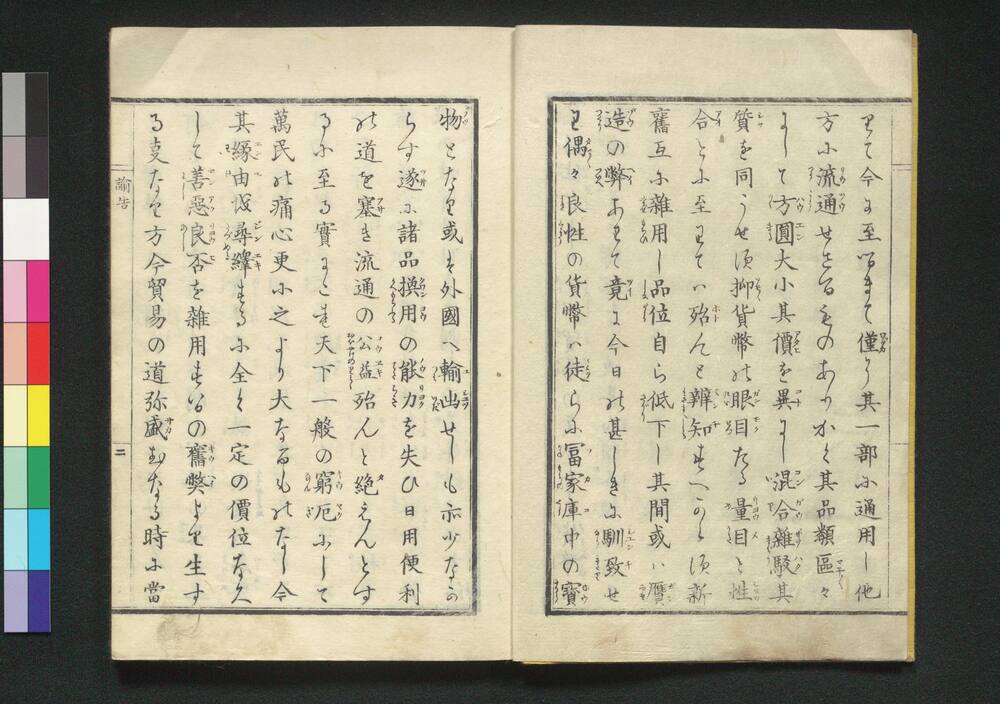 りて今に至るまて僅に其一部に通用し他
方に流通せさるものありかく其品類區々
にして方圓大小其價を異にし混合雜駁其
質を同うせす抑貨幣の眼目たる量目と性
合とに至りては殆んと辨知すへからす新
舊互に雜用し品位自ら低下し其間或は贋
造の弊ありて竟に今日の甚しきに馴致せ
り偶々良性の貨幣は徒らに冨家庫中の寳
物となり或は外國へ輸出せしも亦少なか
らす遂に諸品換用の能力を失ひ日用便利
の道を塞き流通の公益殆んと絶えんとす
るに至る實にこれ天下一般の窮厄にして
萬民の痛心更に之より大なるものなし今
其縁由を尋繹するに全く一定の價位なく
して善惡良否を雜用するの舊弊より生す
る事なり方今貿易の道弥盛むなる時に當
諭告
二